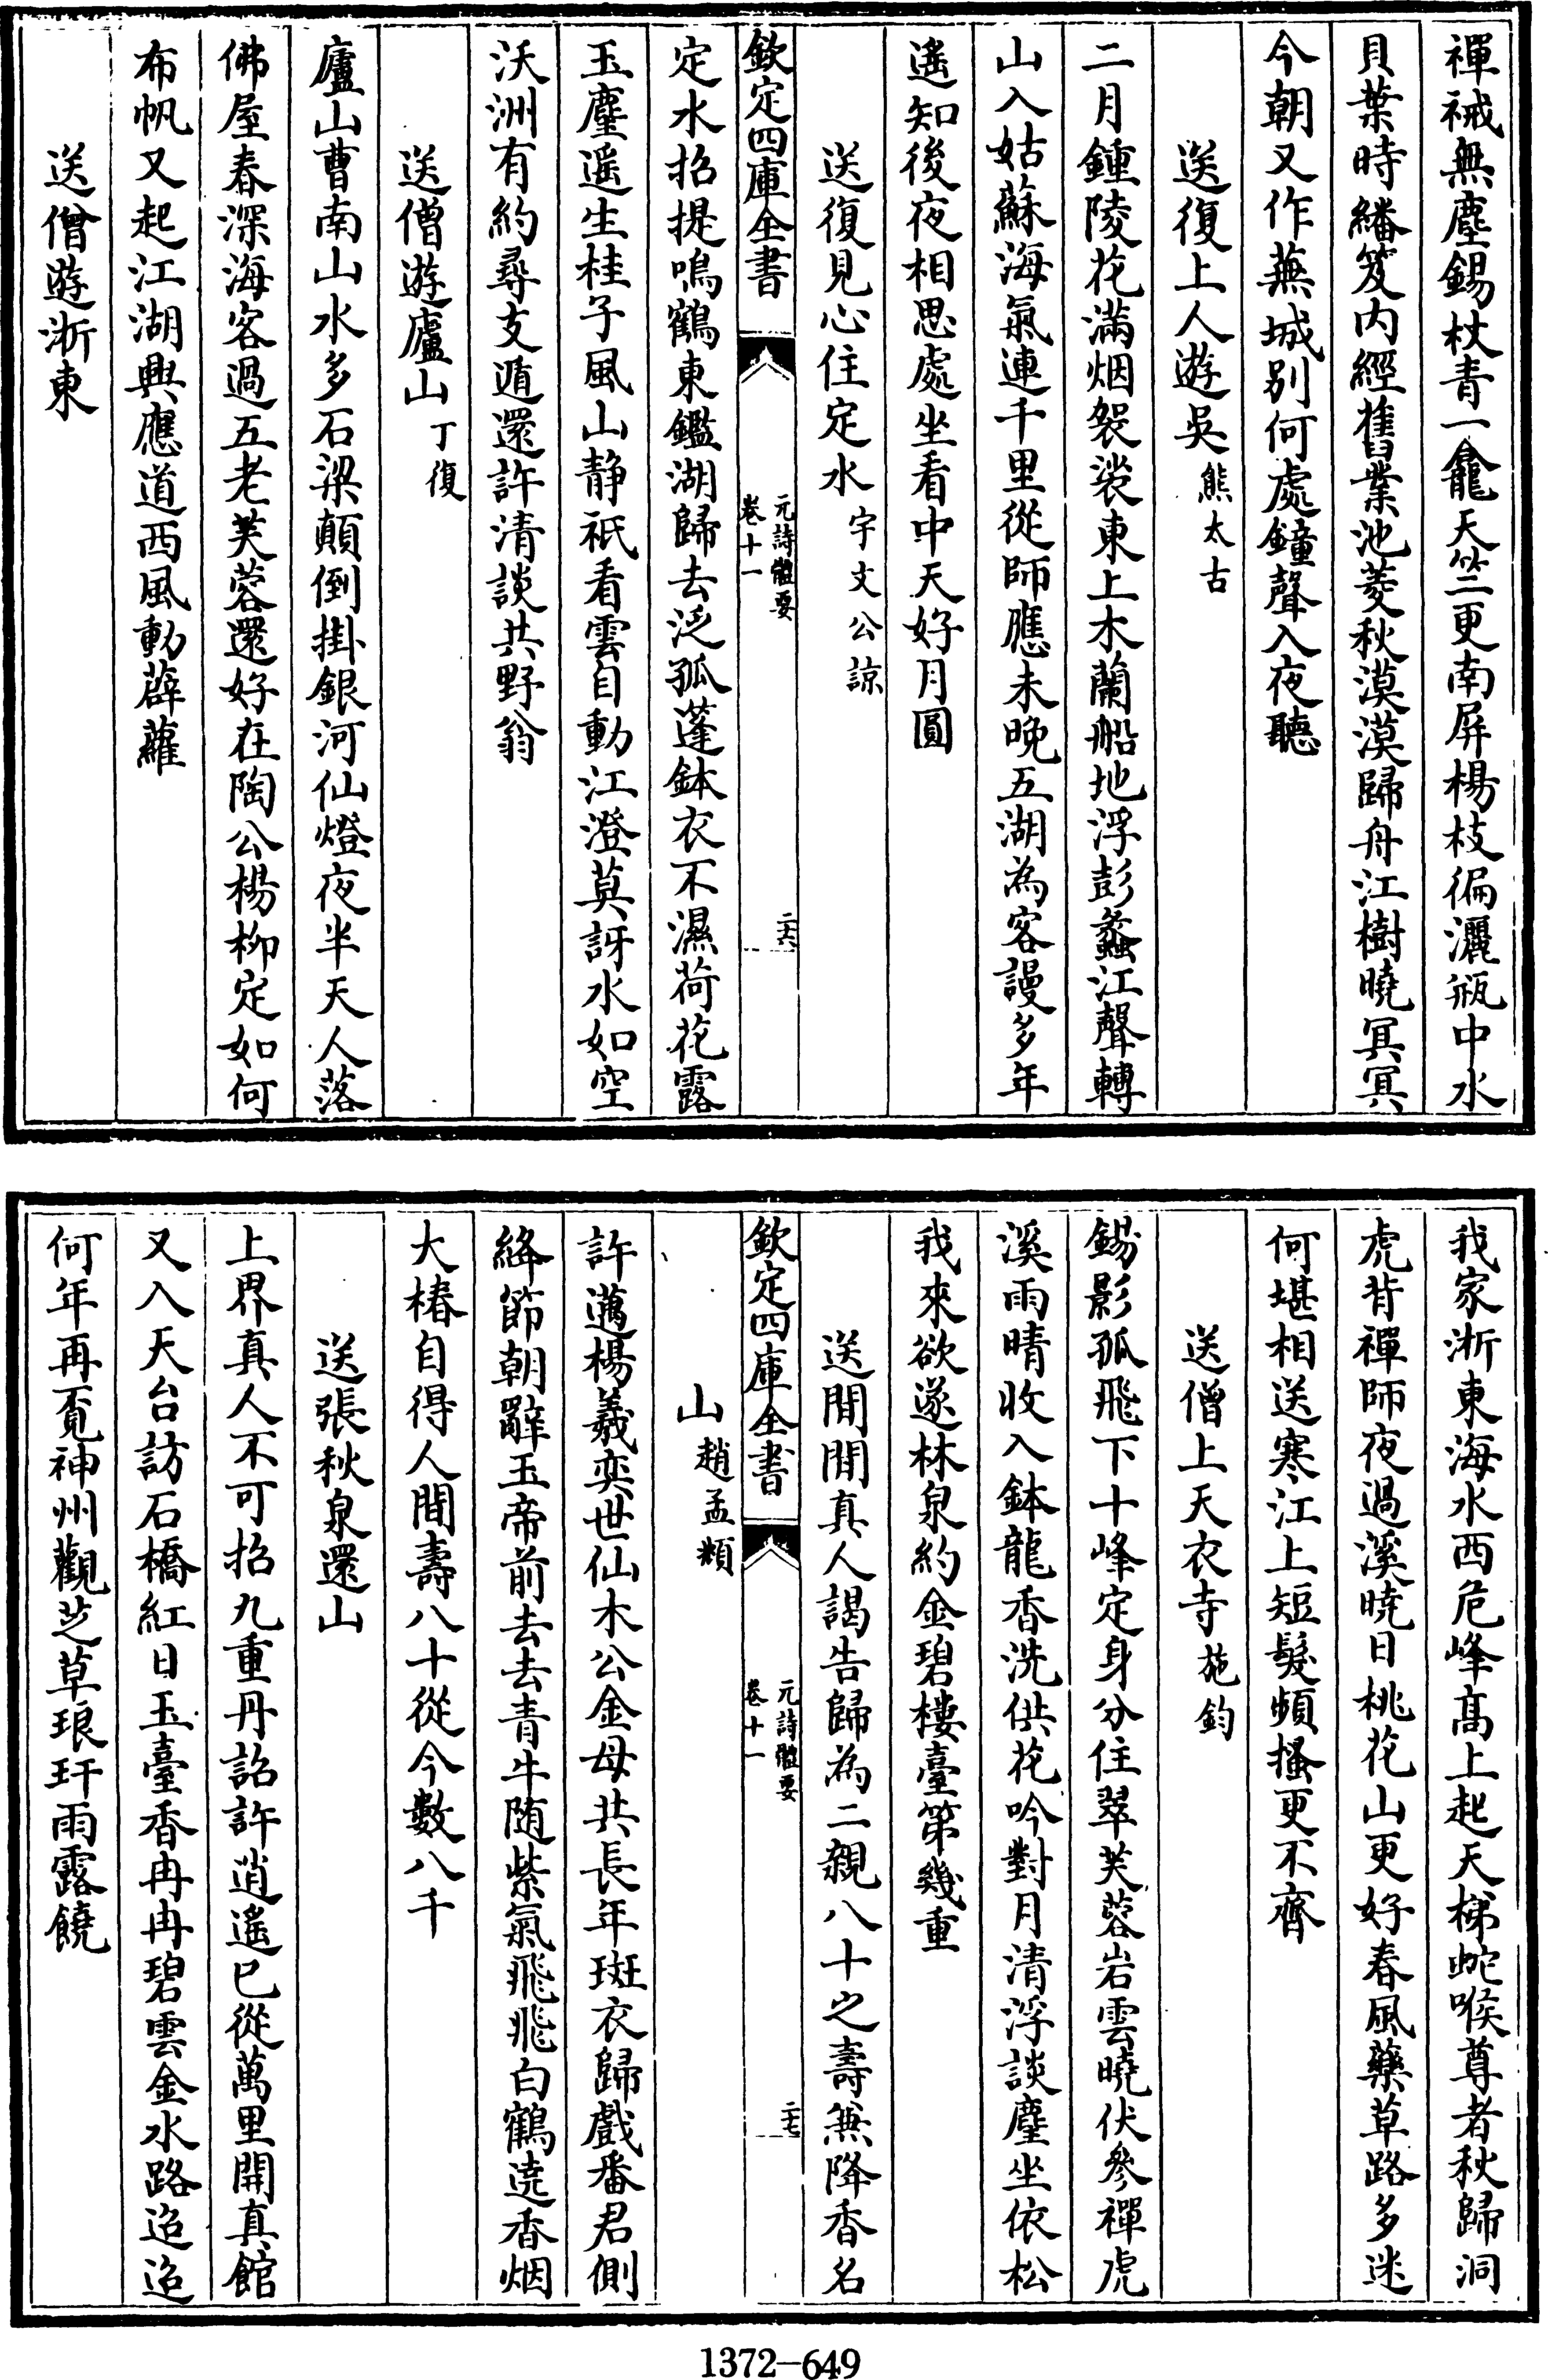 禪裓無塵錫杖青一龕天竺更南屏楊枝徧灑瓶中水
貝葉時繙笈内經舊業池菱秋漠漠歸舟江樹曉冥冥
今朝又作蕪城别何處鐘聲入夜聽
送復上人遊吳熊太古
二月鍾陵花滿烟袈裟東上木蘭船地浮彭蠡江聲轉
山入姑蘇海氣連千里從師應未晚五湖為客謾多年
遙知後夜相思處坐看中天好月圓
送復見心住定水宇文公諒
欽定四庫全書
元詩體要
卷十一
二十六
定水招提鳴鶴東鑑湖歸去泛孤蓬鉢衣不濕荷花露
玉麈遥生桂子風山静祇看雲自動江澄莫訝水如空
沃洲有約尋支遁還許清談共野翁
送僧遊廬山丁復
廬山曹南山水多石梁顛倒掛銀河仙燈夜半天人落
佛屋春深海客過五老芙蓉還好在陶公楊柳定如何
布帆又起江湖興應道西風動薜蘿
送僧遊浙東
我家浙東海水西危峰髙上起天梯蛇喉尊者秋歸洞
虎背禪師夜過溪曉日桃花山更好春風藥草路多迷
何堪相送寒江上短髮頻搔更不齊
送僧上天衣寺施鈞
錫影孤飛下十峰定身分住翠芙蓉岩雲曉伏參禪虎
溪雨晴收入鉢龍香洗供花吟對月清浮談麈坐依松
我來欲遂林泉約金碧樓臺第幾重
送閒閒真人謁告歸為二親八十之壽無降香名
欽定四庫全書
元詩體要
卷十一
二十七
山趙孟頫
許邁楊羲奕世仙木公金母共長年斑衣歸戲番君側
絳節朝辭玉帝前去去青牛随紫氣飛飛白鶴遶香烟
大椿自得人間壽八十從今數八千
送張秋泉還山
上界真人不可招九重丹詔許逍遙已從萬里開真館
又入天台訪石橋紅日玉臺香冉冉碧雲金水路迢迢
何年再覔神州觀芝草琅玕雨露饒
1372-649